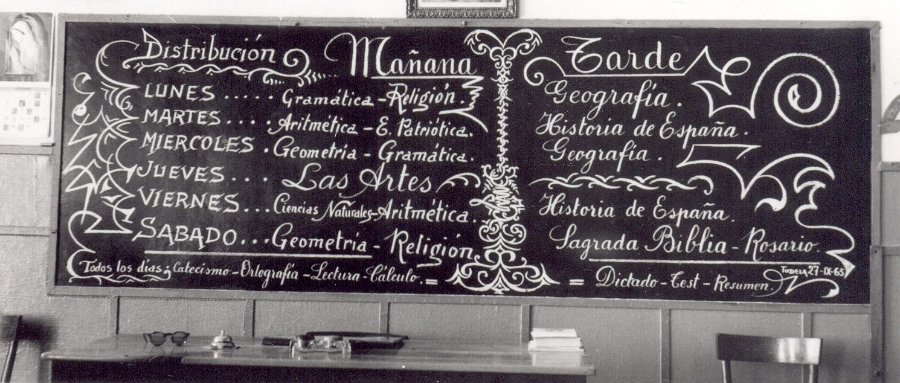 Distribución Mañana Tarde
LUNES ..... Gramática - Religión. Geografía.
MARTES .... Aritmética - E. Patriótica. Historia de España.
MIERCOLES . Geometria - Gramática. Geografía.
JUEVES .... Las Artes
VIERNES ... Ciencias Naturales - Aritmética. Historia de España.
SABADO ... Geometria - Religión Sagrada Biblia - Rosario.
Todos los días: Catecismo - Ortografía - Lectura - Cálculo = = Dictado - Test - Resumen.
TUDELA 27-IX-65